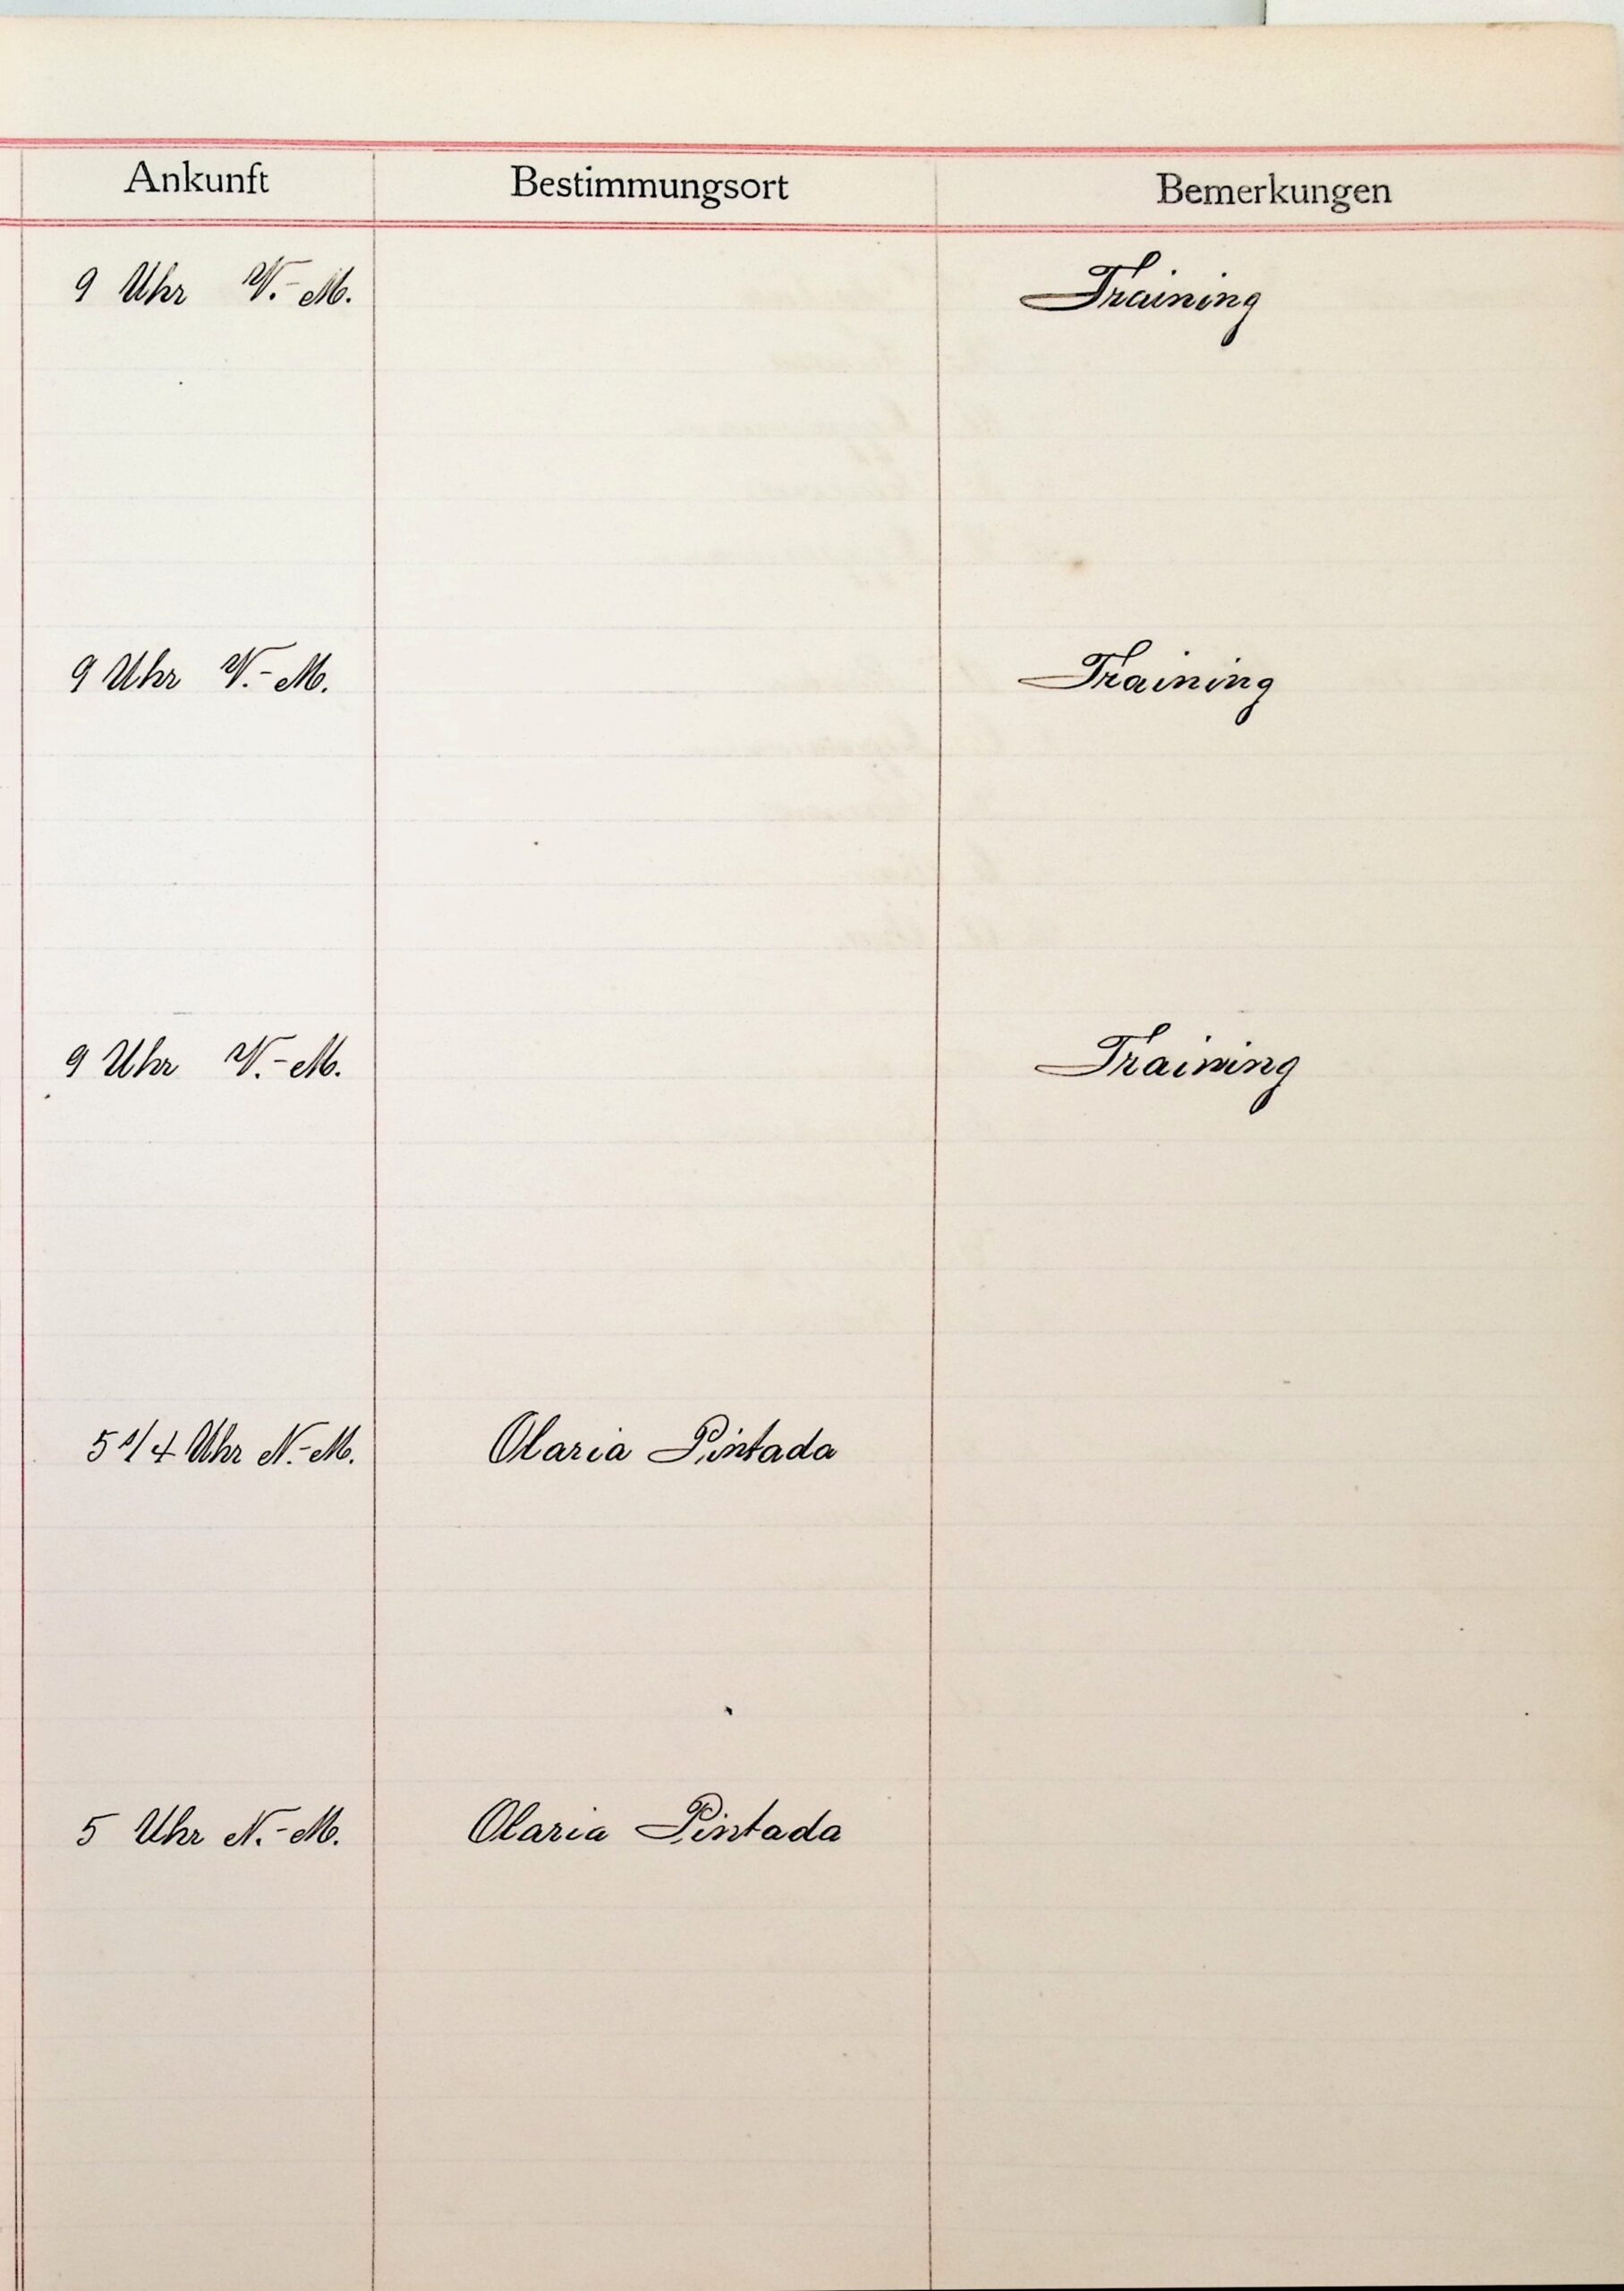 Ankunft Bestimmungsort Bemerkungen
9 Uhr V.-M. Training
9 Uhr V.-M. Training
9 Uhr V.-M. Training
5 1/4 Uhr N.-M. Olaria Pintada
5 Uhr N.-M. Olaria Pintada